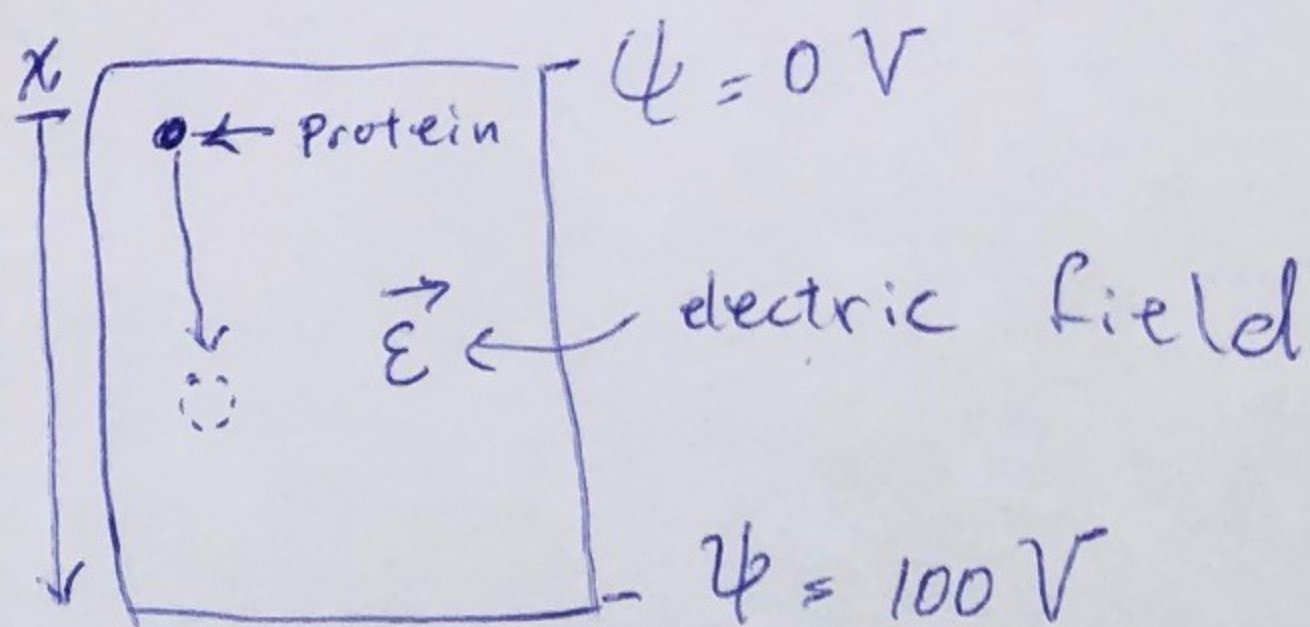 x
ψ = 0 V
Protein
ε⃗
electric field
ψ = 100 V